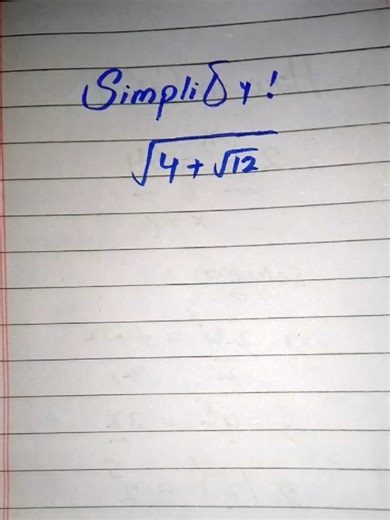 Simplify!
√(4 + √12)